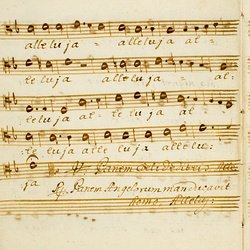 alleluja = alleluja al=
leluja alleluja al=
leluja alleluja al=
leluja alle luja allelu=
ja
V. Panem de
R. Panem Angelorum manducavit
homo. Alleluj.